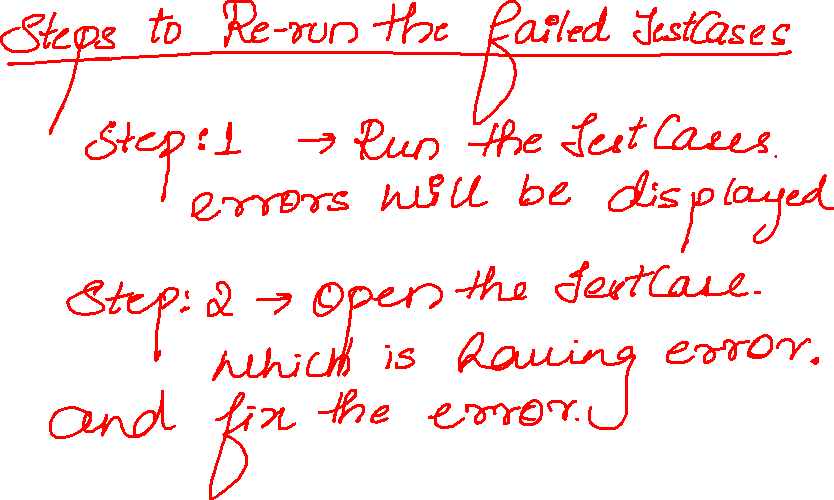 Steps to Re-run the failed TestCases
Step:1 → Run the TestCases.
errors will be displayed
Step:2 → Open the TestCase.
which is having error.
and fix the error.